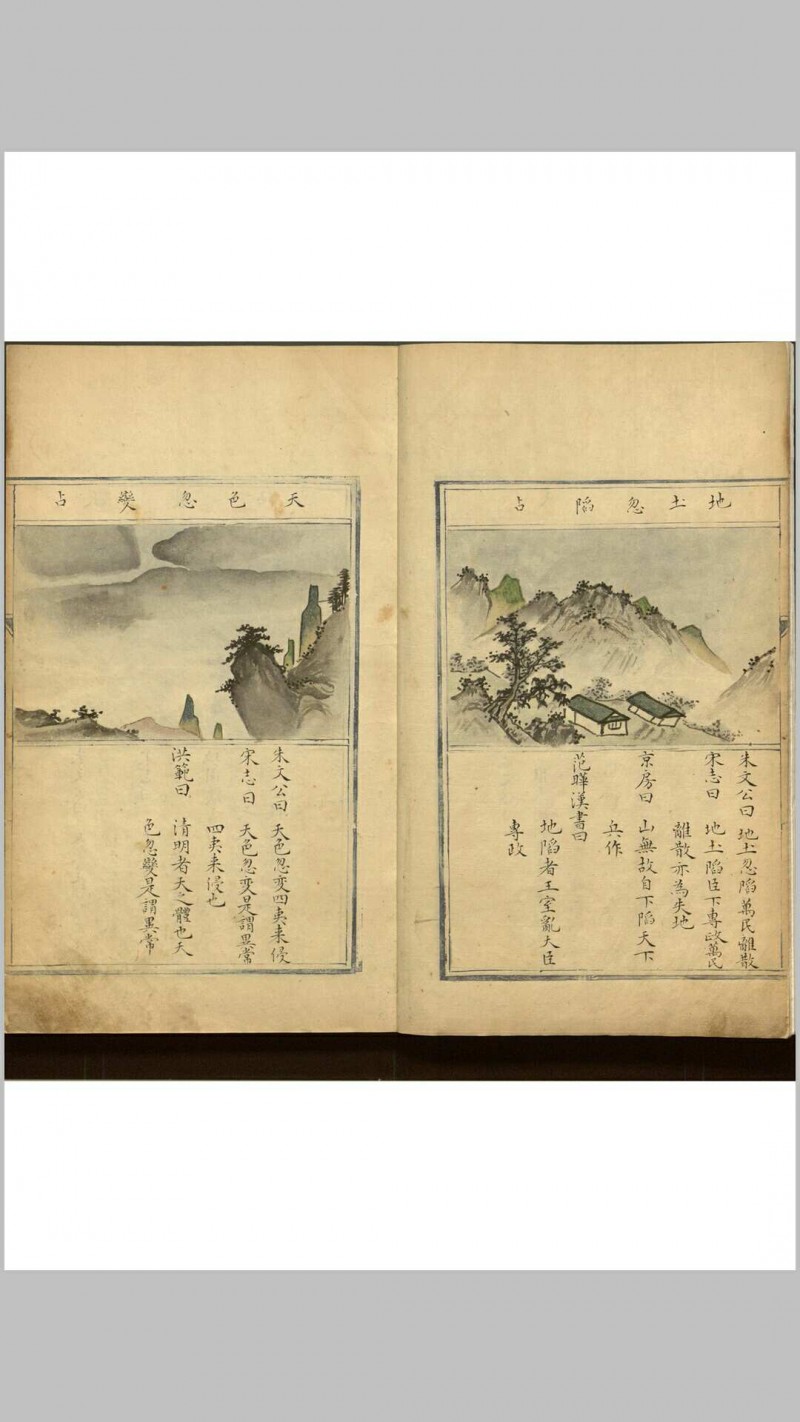 地土忽陷占
朱文公曰 地土忽陷萬民離散
宋志曰 地土陷臣下專政萬民
離散亦為失地
京房曰 山無故自下陷天下
兵作
范曄漢書曰
地陷者王室亂大臣
專政
天色忽變占
朱文公曰 天色忽变四夷来侵
宋志曰 天色忽变是謂異常
四夷来侵也
洪範曰 清明者天之體也天
色忽變是謂異常